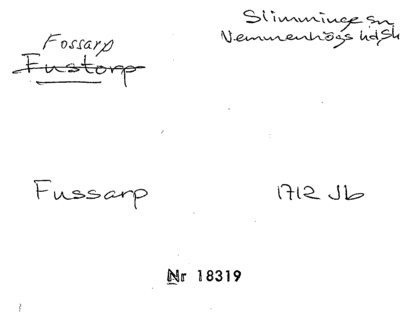 Fossarp
Fustorp
Slimminge sn
Vemmenhögs hd Sk
Fussarp
1712 Jb
Nr 18319